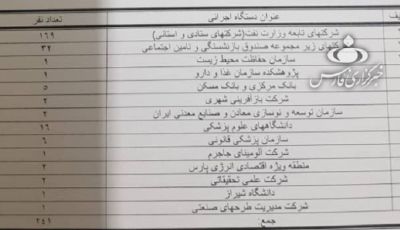 یف عنوان دستگاه اجرایی تعداد نفر
شرکتهای تابعه وزارت نفت(شرکتهای ستادی و استانی) ۱۶۹
کتهای زیر مجموعه صندوق بازنشستگی و تامین اجتماعی ۳۲
سازمان حفاظت محیط زیست ۹
پژوهشکده سازمان غذا و دارو ۱
بانک مرکزی و بانک مسکن ۵
شرکت بازآفرینی شهری ۲
سازمان توسعه و نوسازی معادن و صنایع معدنی ایران ۲
دانشگاههای علوم پزشکی ۱۶
سازمان پزشکی قانونی ۶
شرکت آلومینای جاجرم ۱
منطقه ویژه اقتصادی انرژی پارس
شرکت علمی تحقیقاتی
دانشگاه شیراز ۱
شرکت مدیریت طرحهای صنعتی
جمع: ۲۴۱
خبرگزاری فارس